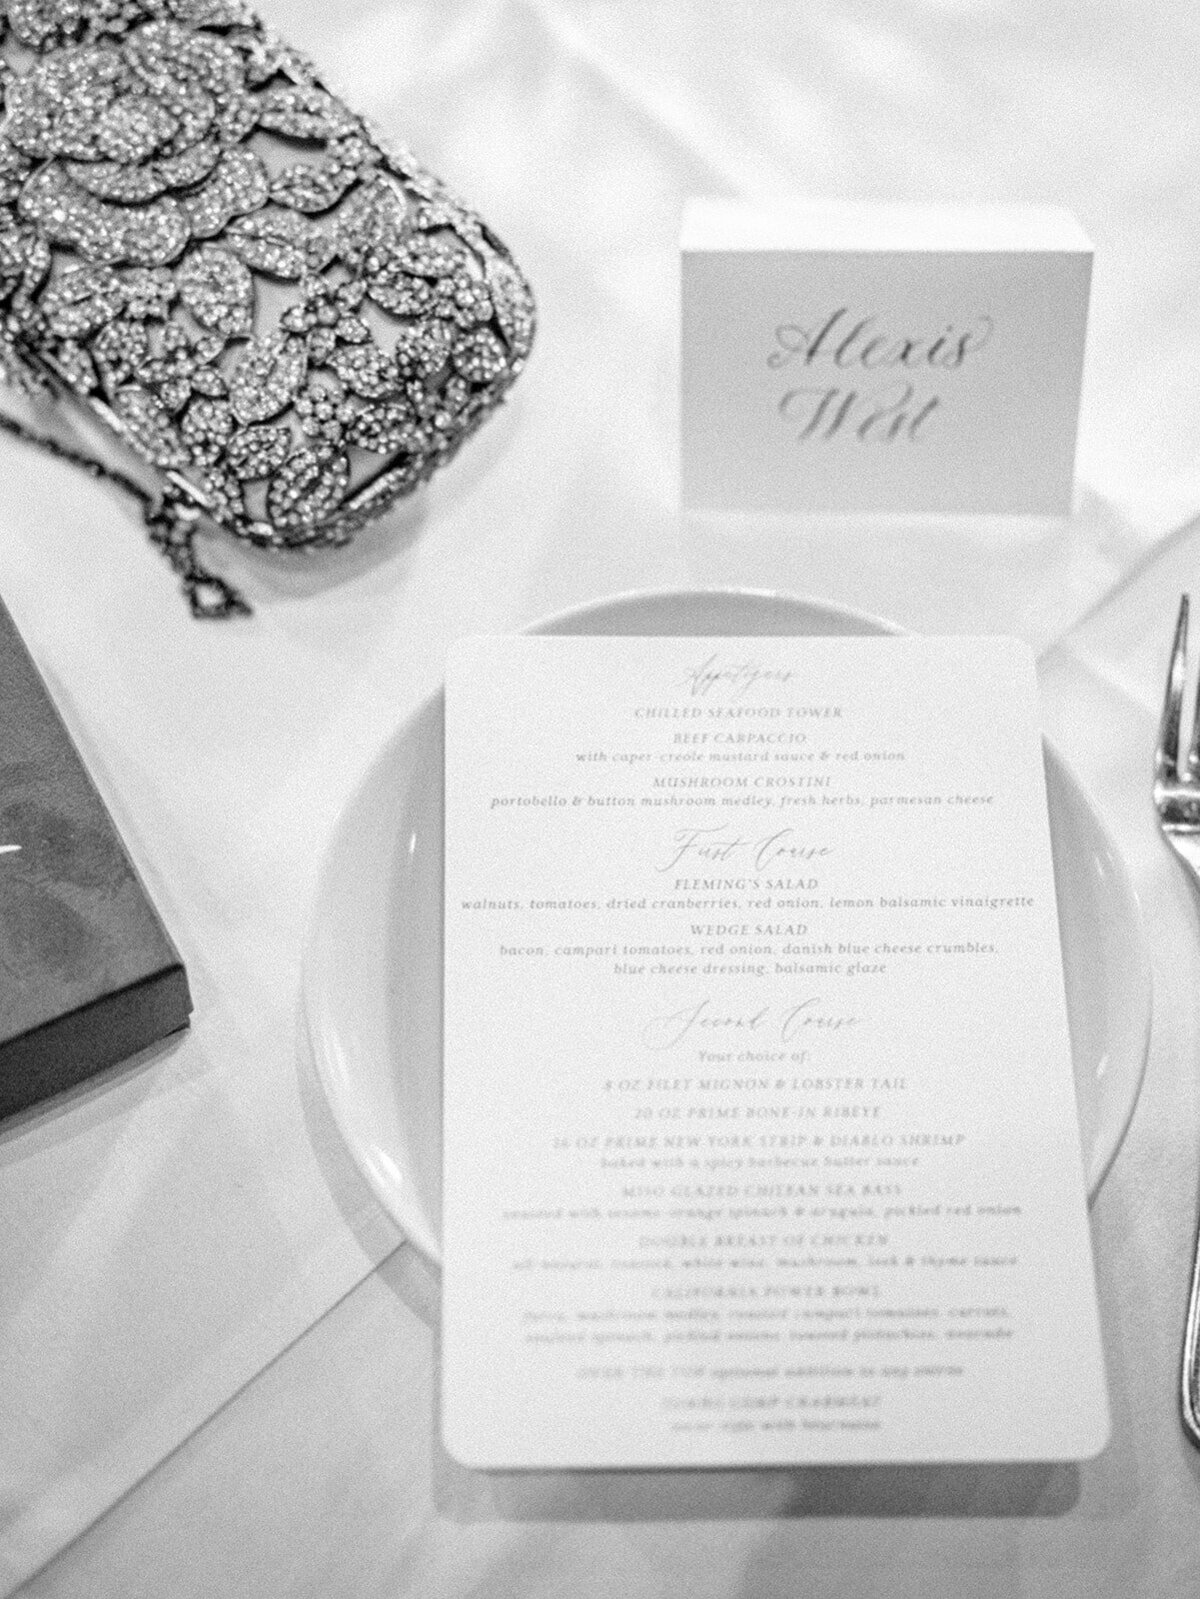 Alexis
West
Appetizers
CHILLED SEAFOOD TOWER
BEEF CARPACCIO
with caper-creole mustard sauce & red onion
MUSHROOM CROSTINI
portobello & button mushroom medley, fresh herbs, parmesan cheese
First Course
FLEMING'S SALAD
walnuts, tomatoes, dried cranberries, red onion, lemon balsamic vinaigrette
WEDGE SALAD
bacon, campari tomatoes, red onion, danish blue cheese crumbles,
blue cheese dressing, balsamic glaze
Second Course
Your choice of:
8 OZ FILET MIGNON & LOBSTER TAIL
20 OZ PRIME BONE-IN RIBEYE
16 OZ PRIME NEW YORK STRIP & DIABLO SHRIMP
baked with a spicy barbecue butter sauce
MISO GLAZED CHILEAN SEA BASS
sesame-orange spinach & arugula, pickled red onion
DOUBLE BREAST OF CHICKEN
all-natural, roasted, white wine, mushroom, leek & thyme sauce
CALIFORNIA POWER BOWL
mushroom medley, roasted campari tomatoes, carrots,
spinach, pickled onions, roasted pistachios, avocado
OVER THE TOP optional addition to any entree
JUMBO LUMP CRABMEAT
with béarnaise